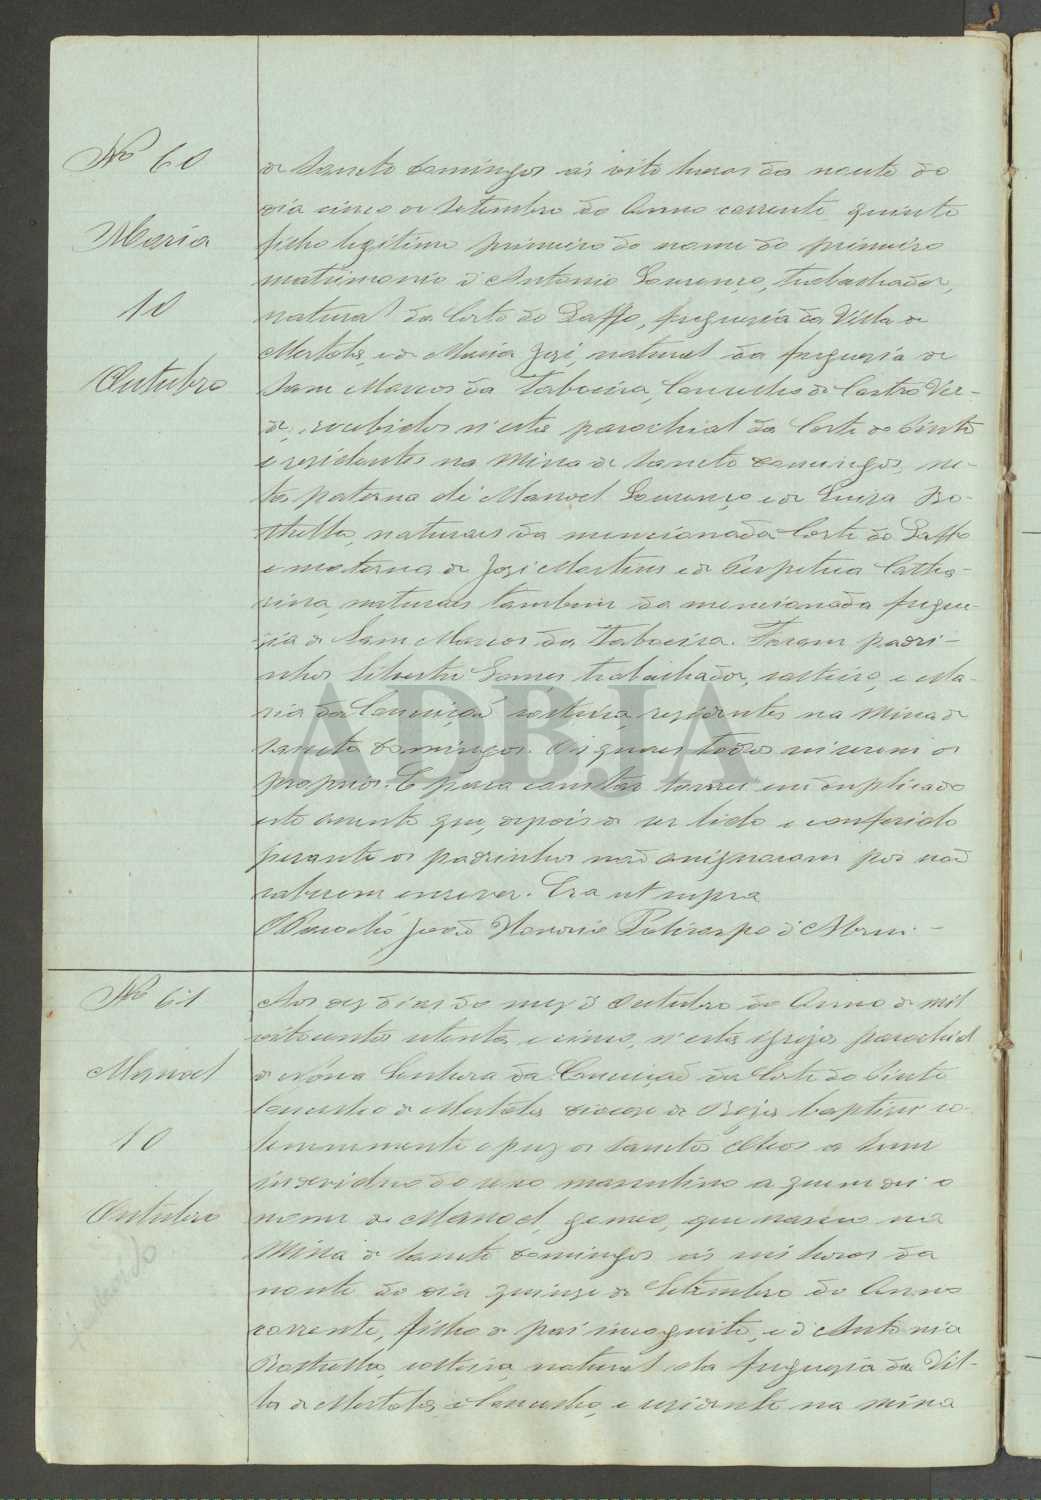 Nº 60
Maria
10
Outubro
de Sancto Domingos ás oito horas da noute do
dia cinco de Setembro do Anno corrente, quinto
filho legitimo primeiro do nome do primeiro
matrimonio d'Antonio Lourenço, trabalhador,
natural da Corte do Gaffo, freguezia da Villa de
Mertola, e de Maria José, natural da freguezia de
Sam Marcos da Taboeira, Concelho de Castro Ver-
de, recebidos n'esta parochial da Corte do Pinto
e residentes na Mina de Sancto Domingos, ne-
ta paterna de Manoel Lourenço e de Luiza Bo-
thelha, naturaes da mencionada Corte do Gaffo
e materna de José Martins e de Perpetua Catha-
rina, naturaes tambem da mencionada fregue-
zia de Sam Marcos da Taboeira. Foram padri-
nhos Silvestre Gomes trabalhador, solteiro, e Ma-
ria da Conceição solteira, residentes na Mina de
Sancto Domingos. Os quaes todos sei serem os
proprios. E para constar lavrei em duplicado
este assento que, depois de ser lido e conferido
perante os padrinhos não assignaram por não
saberem escrever. Era ut supra
O Parocho João Honorio Policarpo d'Abreu
Nº 61
Manoel
10
Outubro
Aos dez dias do mez d'Outubro do Anno de mil
oitocentos oitenta e cinco, n'esta igreja parochial
de Nossa Senhora da Conceição da Corte do Pinto
Concelho de Mertola diocese de Beja baptizei so-
lemnemente e puz os Sanctos Oleos a hum
individuo do sexo masculino a quem dei o
nome de Manoel, gemeo, que nasceu na
Mina de Sancto Domingos ás seis horas da
noute do dia quinze de Setembro do Anno
corrente, filho de pai incognito, e d'Antonia
solteira, natural da freguezia da Vil-
la de Mertola, e Concelho, e residente na Mina
ADBJA